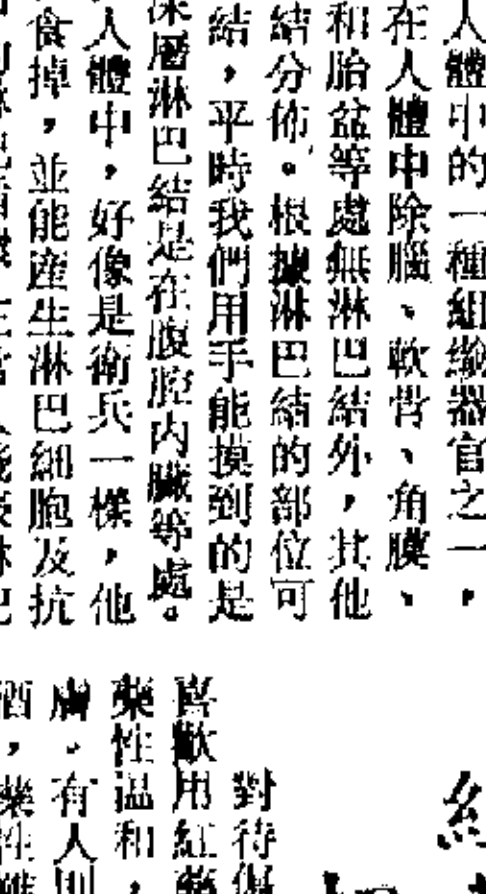 人體中的一種組織器官之一，
在人體中除腦、軟骨、角膜、
和胎盆等處無淋巴結外，其他
結分佈。根據淋巴結的部位可
結，平時我們用手能摸到的是
深層淋巴結是在腹腔內臟等處。
人體中，好像是衛兵一樣，他
食掉，並能産生淋巴細胞及抗
對待
喜歡用紅藥
藥性溫和，
膚。有人則
酒，藥性